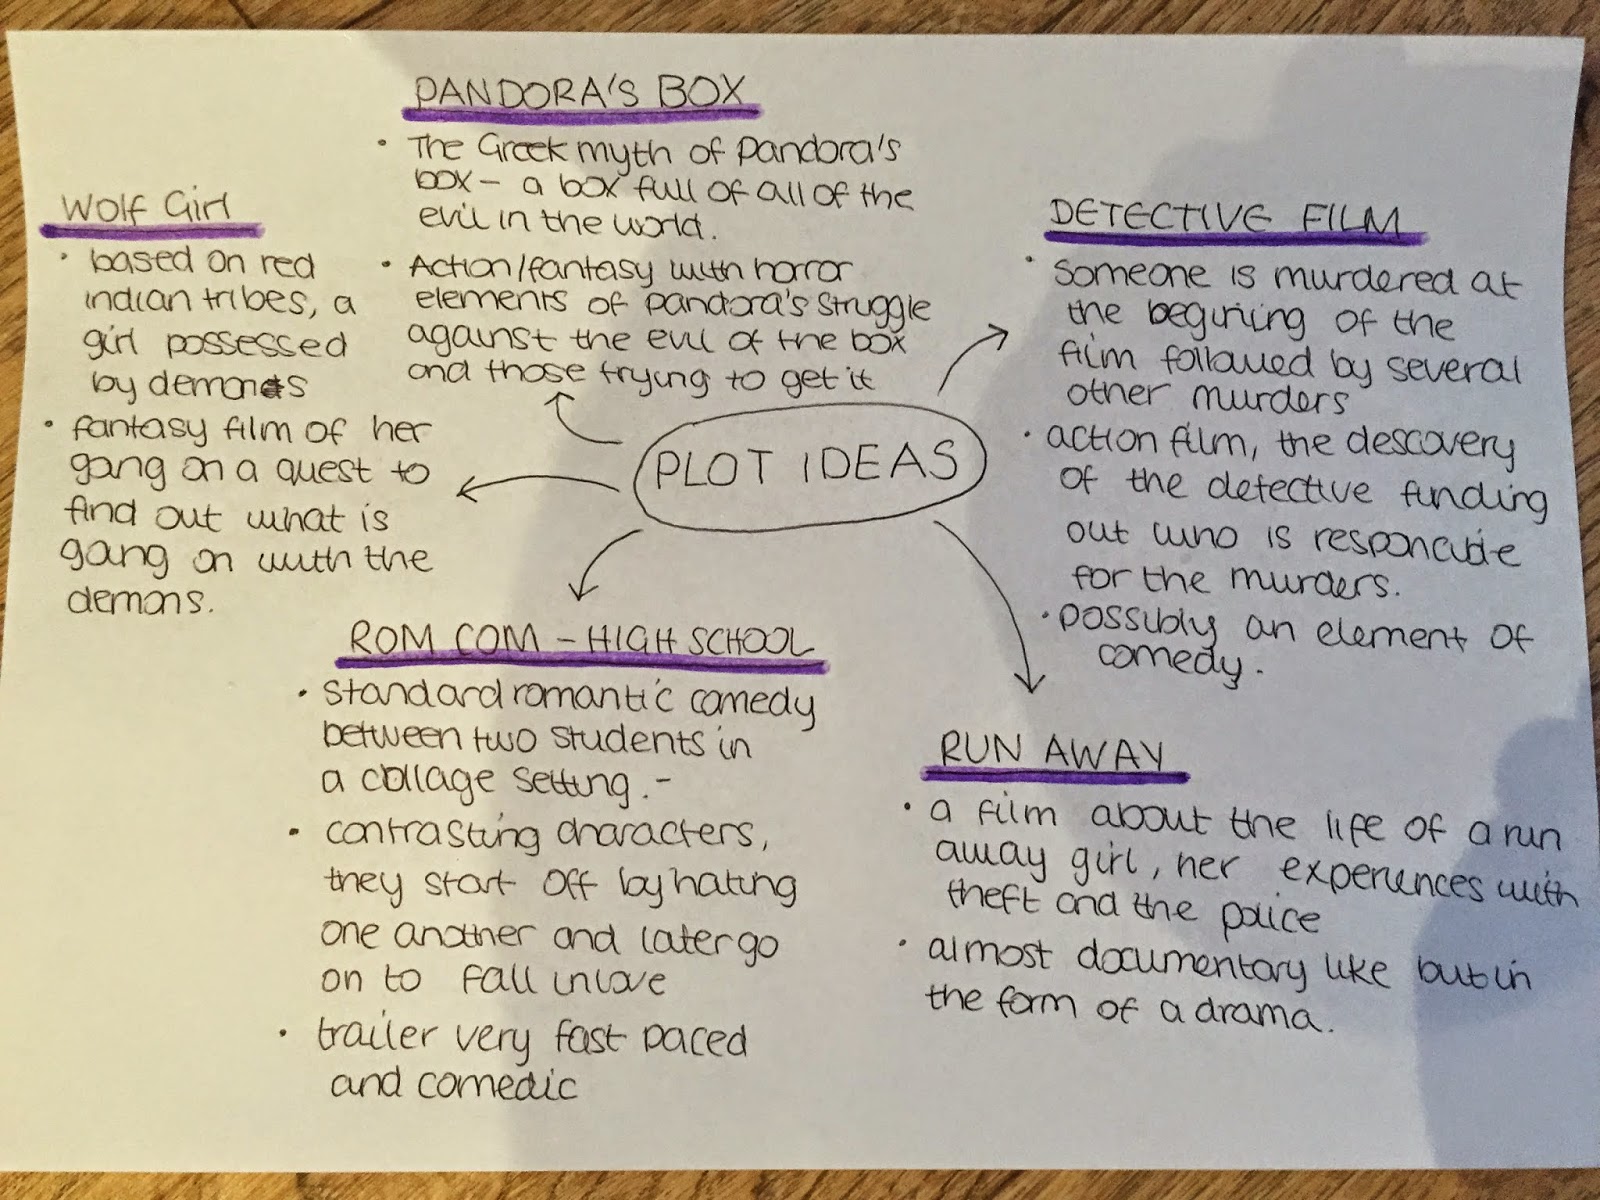 PLOT IDEAS
PANDORA'S BOX
• The Greek myth of Pandora's
box – a box full of all of the
evil in the world.
• Action/fantasy with horror
elements of pandora's struggle
against the evil of the box
and those trying to get it
Wolf Girl
• based on red
indian tribes, a
girl possessed
by demons
• fantasy film of her
going on a quest to
find out what is
going on with the
demons.
DETECTIVE FILM
• someone is murdered at
the begining of the
film followed by several
other murders
• action film, the descovery
of the detective funding
out who is responcible
for the murders.
• possibly an element of
comedy.
ROM COM – HIGH SCHOOL
• standard romantic comedy
between two students in
a collage setting. -
• contrasting characters,
they start off by hating
one another and later go
on to fall in love
• trailer very fast paced
and comedic
RUN AWAY
• a film about the life of a run
away girl, her experiences with
theft and the police
• almost documentary like but in
the form of a drama.